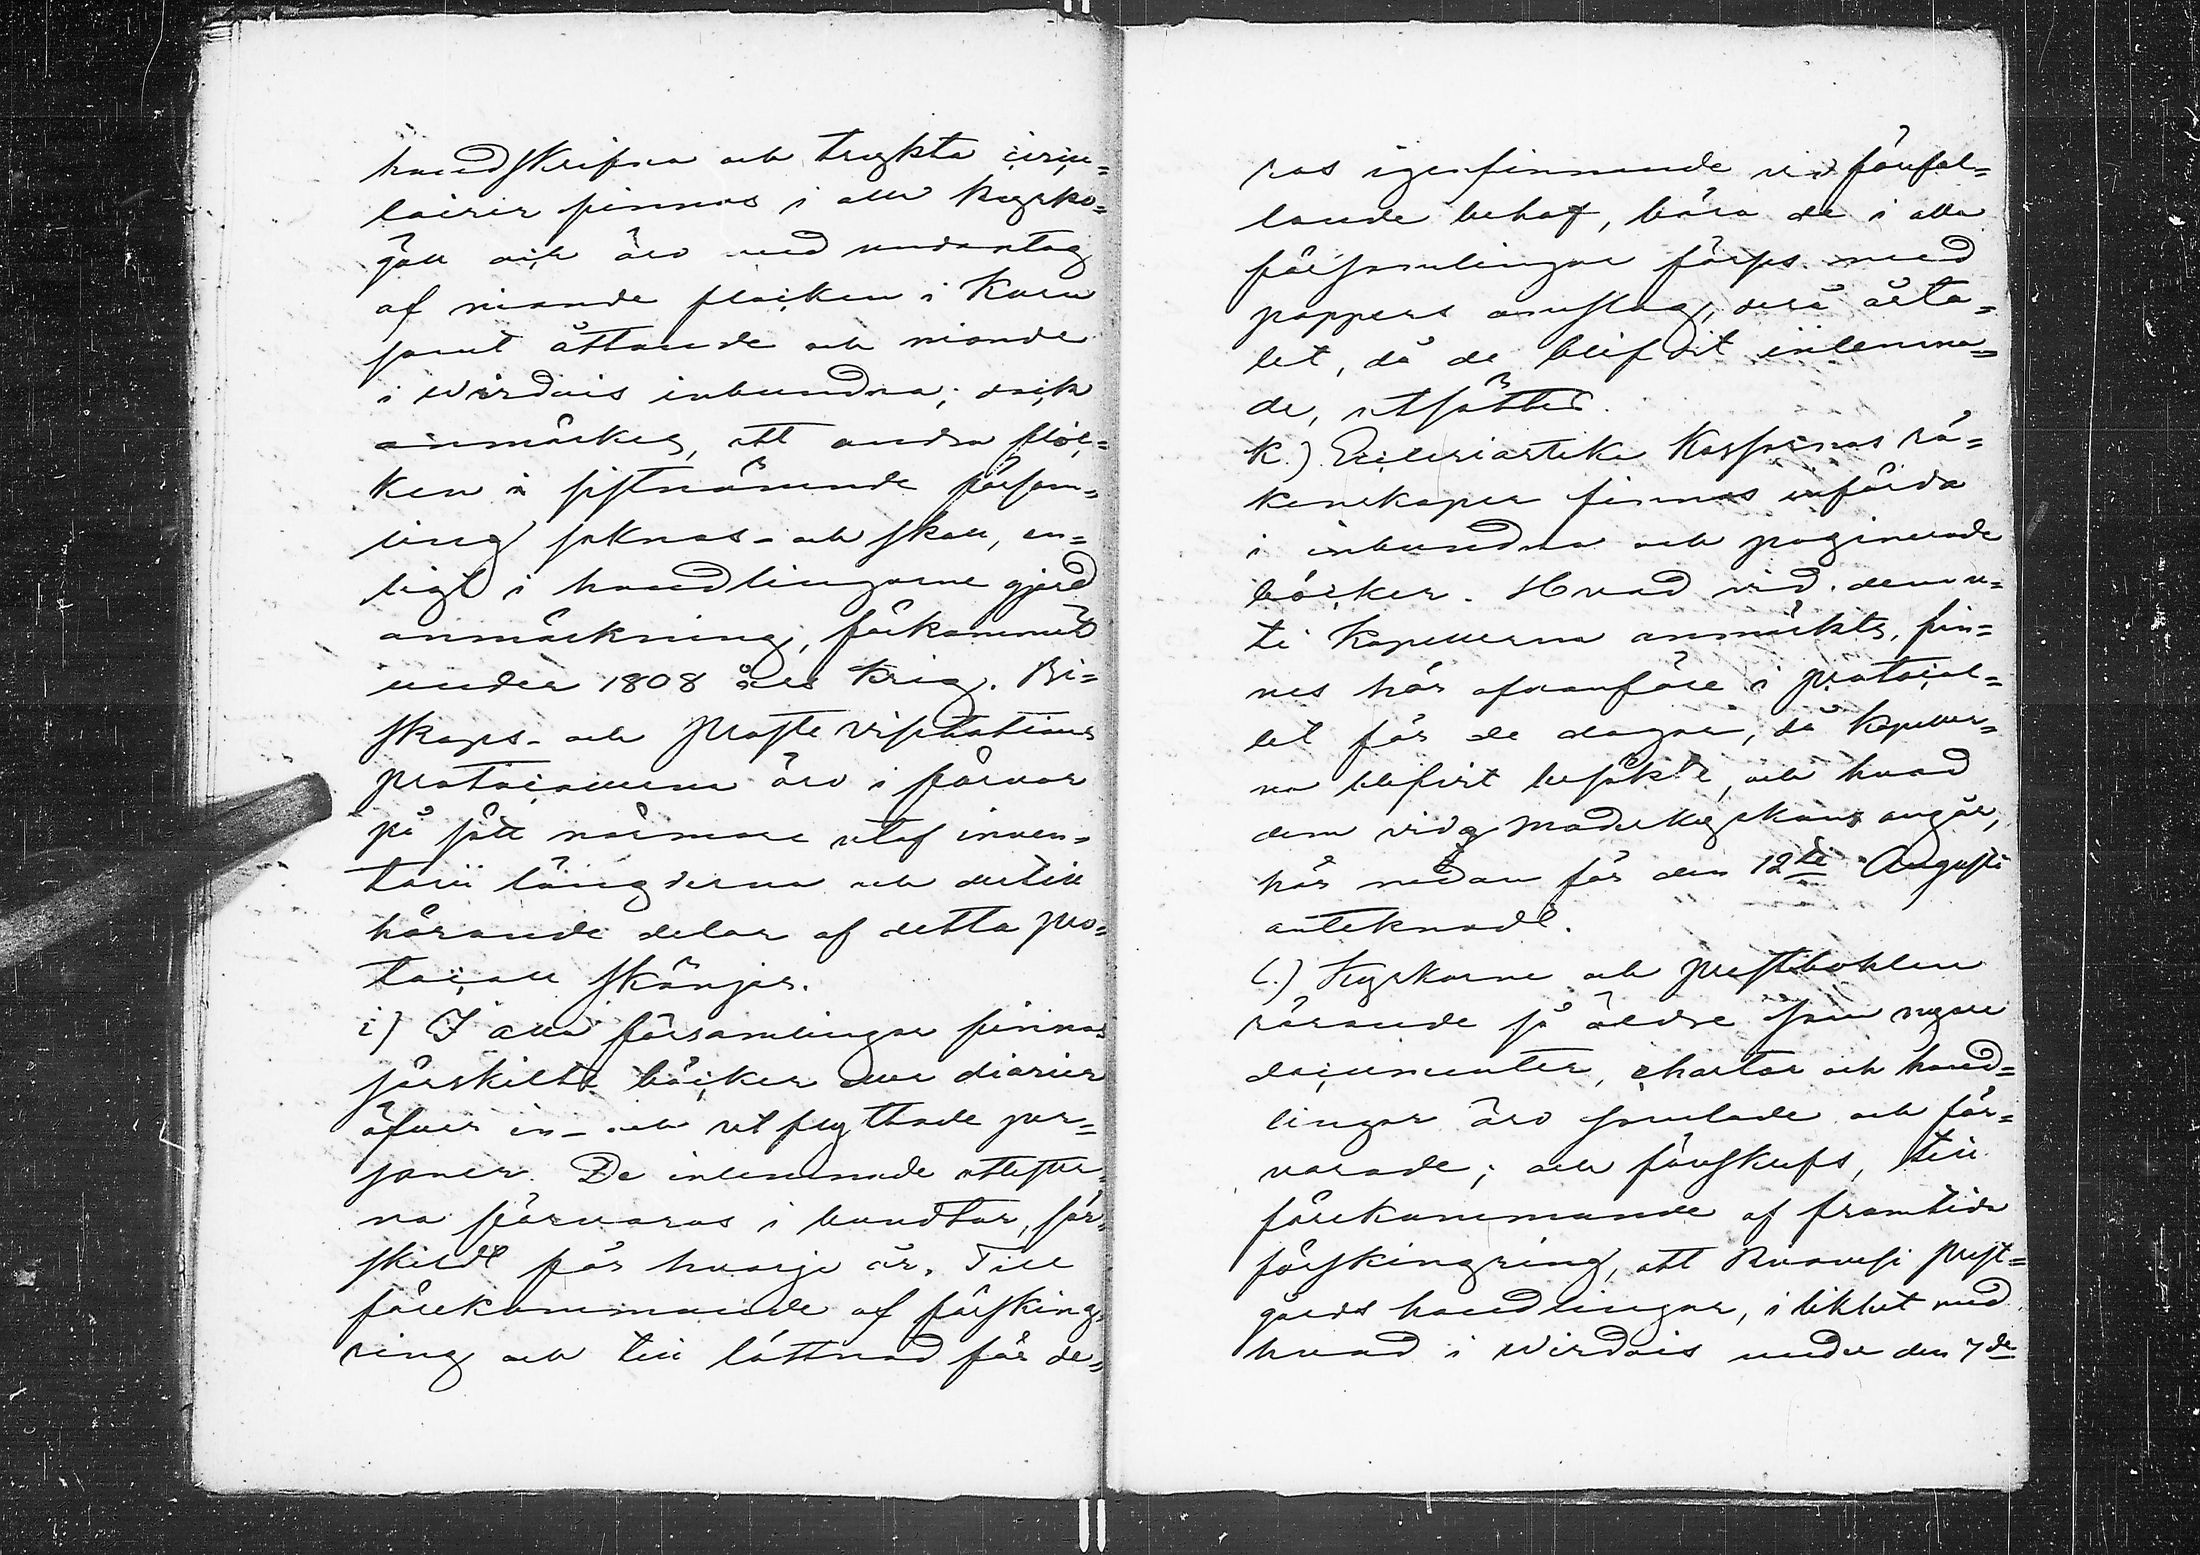 handskrifna och tryckta circu=
lairer finnas i alla kyrko=
gåll och äro med undantag
af nionde flocken i Kuru
samt åttonde och nionde
i Wirdois inbundna; dock
anmärkes, att andra floc=
ken i sistnämnde församl=
ling saknas - och skall, en=
ligt i handlingarne gjord
anmärkning, förkommit
under 1808 års krig. Bi=
skops- och Proste visitations
protocollerna äro i förvar
på sätt närmare utaf inven=
tarii längderna och dertill
hörande delar af detta pro=
tocoll skönjes.
i) I alla församlingar finnas
särskilta böcker eller diarier
öfver in- och utflyttade per=
soner. De inlemnade attester=
na förvaras i bundtar, sär=
skildt för hvarje år. Till
förekommande af försking=
ring och till lättnad för de=
ras igenfinnande vid förefal=
lande behof, böra de i alla
församlingar förses med
pappers omslag, derå årta=
let, då de blifvit inlemna=
de, utsättes.
k.) Ecclesiastike Kassornas rä=
kenskaper finnas införda
i inbundna och paginerade
böcker. Hvad vid dem u=
ti Kapellerna anmärkts, fin=
nes här ofvanföre i protocol=
let för de dagar, då kapeller=
na blifvit besökte, och hvad
dem vid Moderkyrkans angår,
här nedan för den 12te Augusti
antecknadt.
l.) Kyrkorne och prestbohlen
rörande så äldre som nyare
documenter, chartor och hand=
lingar äro samlade och för=
varade; och föreskrefs, till
förekommande af framtida
förskingring, att Ruovesi prest=
gårds handlingar, i likhet med
hvad i Wirdois under den 7de